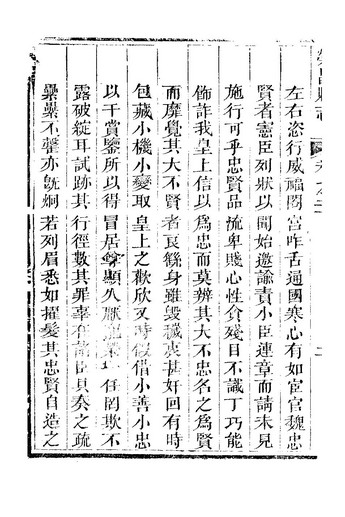 左右恣行威福閣宮咋舌通國寒心有如宦官魏忠
賢者憲臣列狀以聞始邀諭責小臣連章而請未見
施行可乎忠賢品流卑賤心性貪殘目不識丁巧能
飾詐我皇上信以為忠而莫辨其大不忠名之為賢
而靡覺其大不賢者良繇身雖毁穢衷甚奸回有時
包藏小機小變取皇上之歡欣又時假借小善小忠
以干賞鑒所以得冒居尊顯久 任罔欺不
露破綻耳試跡其行徑數其罪辜在 臣具奏之疏
纍纍不罄亦旣炯若列眉悉如擢髮其忠賢自造之